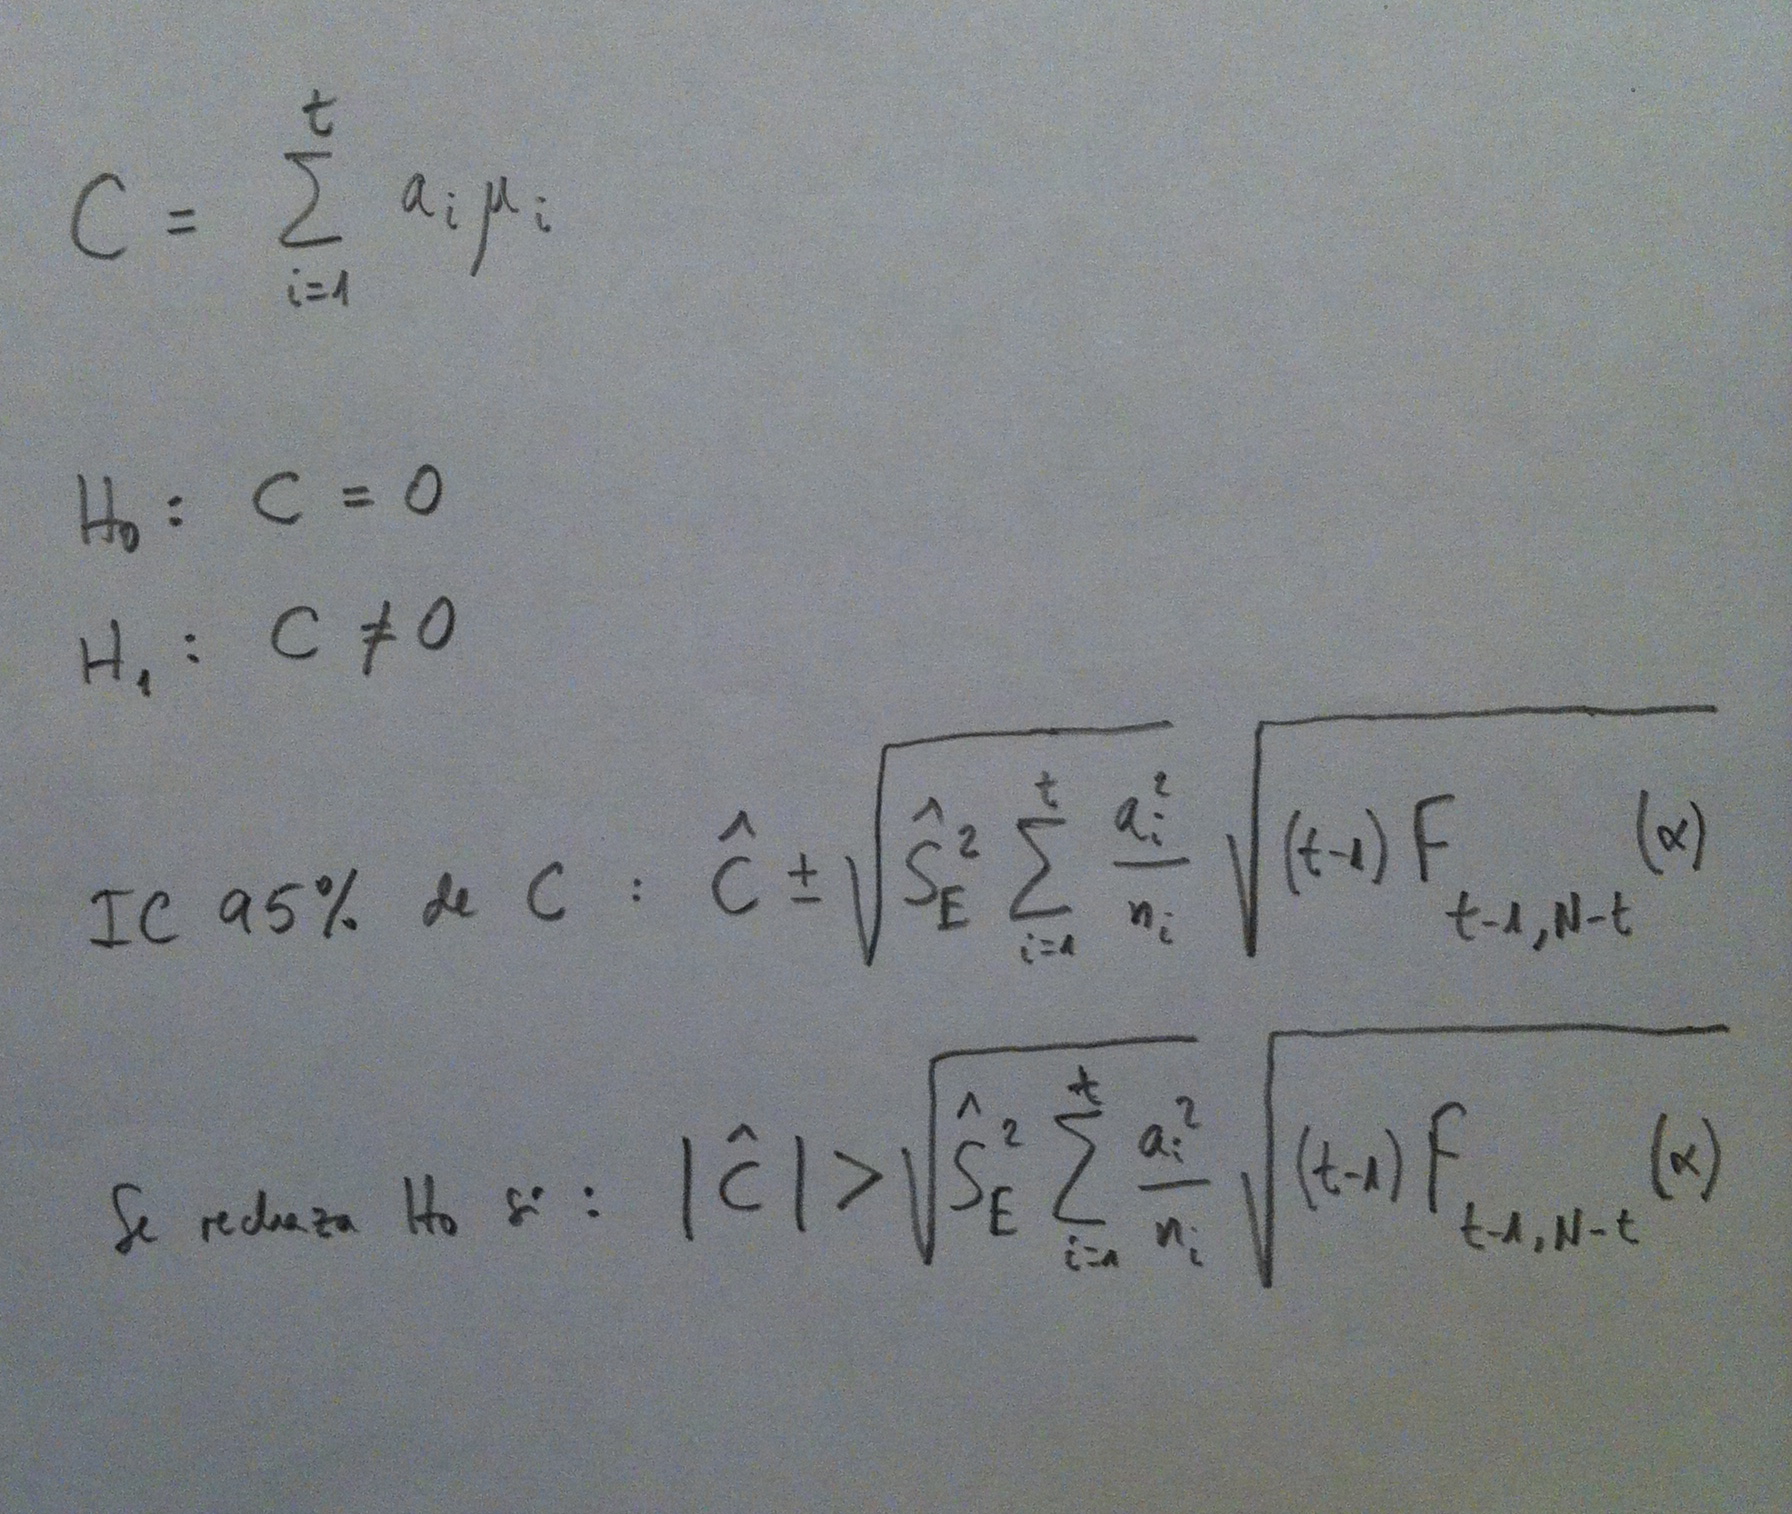 C = \sum_{i=1}^{t} a_i \mu_i
H_0 : C = 0
H_1 : C ≠ 0
IC 95% de C : \hat{C} ± \sqrt{\hat{S}_E^2 \sum_{i=1}^{t} \frac{a_i^2}{n_i}} \sqrt{(t-1) F_{t-1, N-t} (α)}
Se rechaza H_0 si : |\hat{C}| > \sqrt{\hat{S}_E^2 \sum_{i=1}^{t} \frac{a_i^2}{n_i}} \sqrt{(t-1) F_{t-1, N-t} (α)}